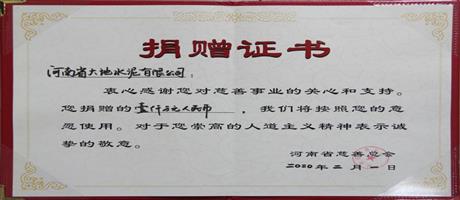 捐赠证书
河南省大地水泥有限公司：
衷心感谢您对慈善事业的关心和支持。
您捐赠的壹仟万元人民币，我们将按照您的意
愿使用。对于您崇高的人道主义精神表示诚
挚的敬意。
河南省慈善总会
2020年二月一日